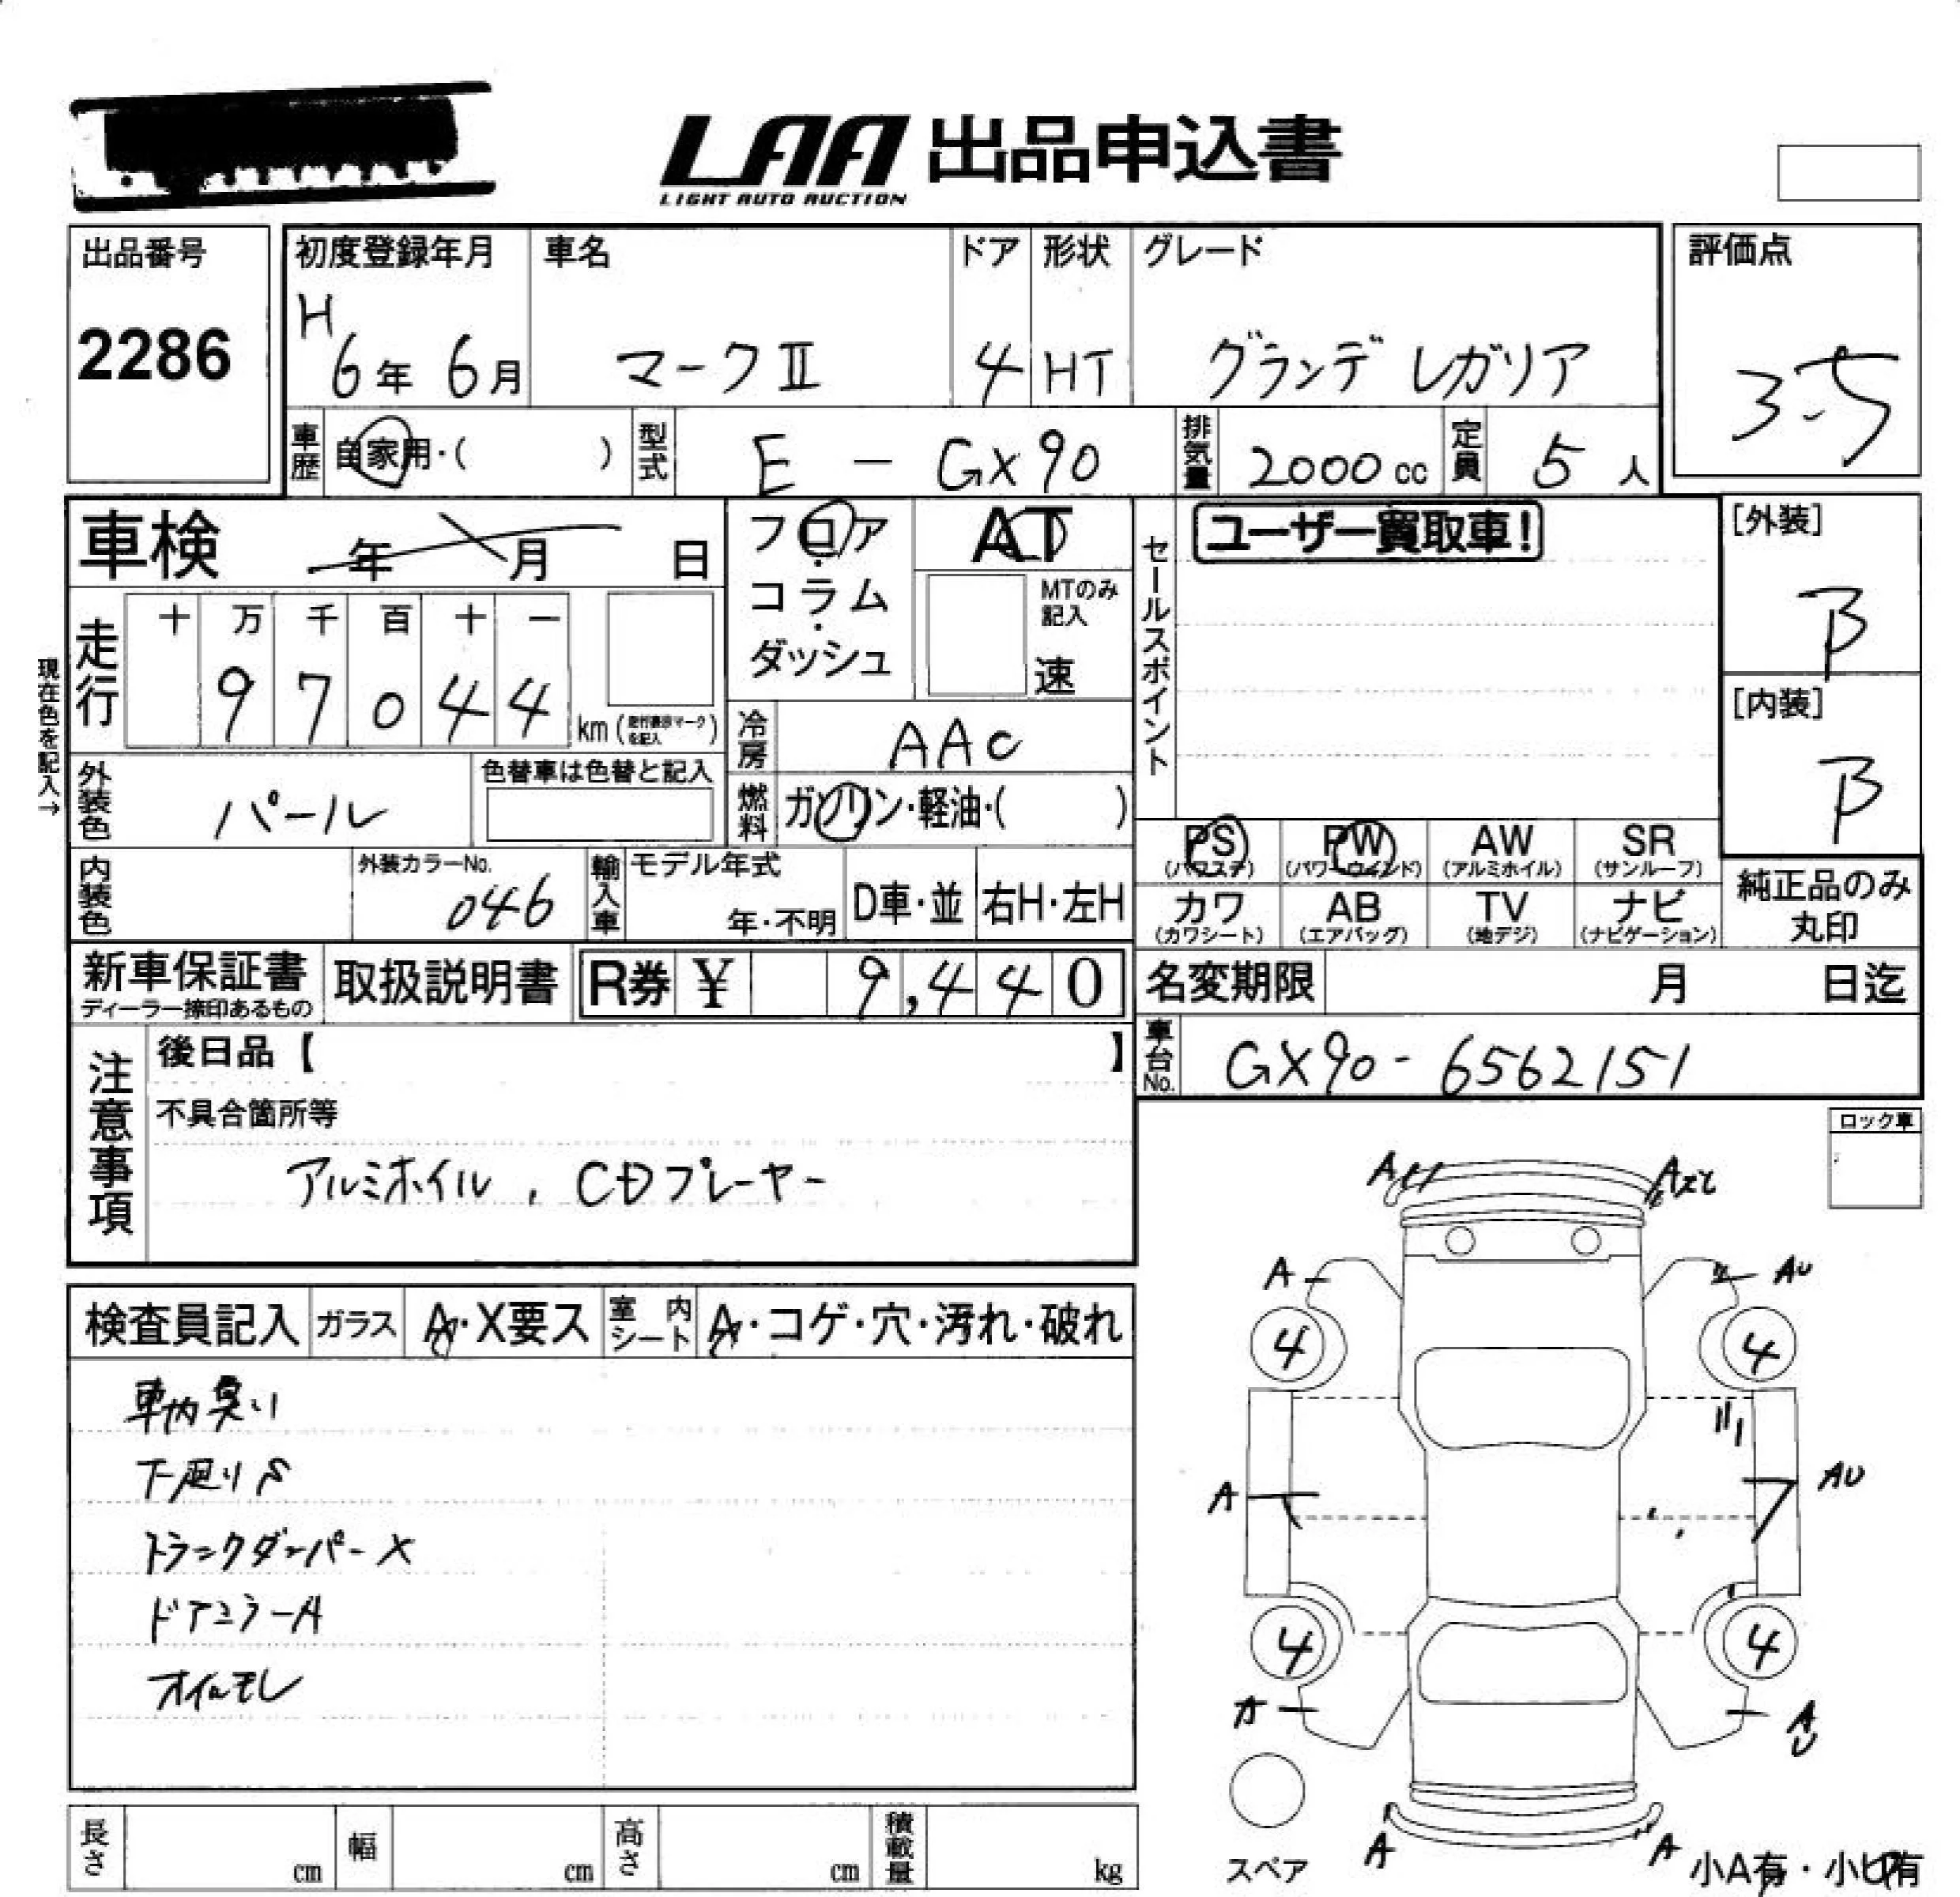 LAA 出品申込書
LIGHT AUTO AUCTION
出品番号
2286
初度登録年月
H
6年 6月
車名
マークⅡ
ドア
4
形状
HT
グレード
グランデ レガリア
評価点
3.5
車歴 自家用・( )
型式 E - GX90
排気量 2000 cc
定員 5 人
車検 年 月 日
フロア・コラム・ダッシュ
AT
MTのみ記入
速
セールスポイント
ユーザー買取車!
[外装]
B
[内装]
B
現在色を記入→
走行
十 万 千 百 十 一
9 7 0 4 4
km (走行表示マークを記入)
冷房 AAC
燃料 ガソリン・軽油・( )
外装色 パール
色替車は色替と記入
内装色
外装カラーNo.
046
輸入車
モデル年式
年・不明
D車・並
右H・左H
PS
(パワステ)
PW
(パワーウインド)
AW
(アルミホイル)
SR
(サンルーフ)
カワ
(カワシート)
AB
(エアバッグ)
TV
(地デジ)
ナビ
(ナビゲーション)
純正品のみ
丸印
新車保証書
ディーラー捺印あるもの
取扱説明書
R券 ¥ 9,440
名変期限 月 日迄
車台No. GX90-6562151
注意事項
後日品【 】
不具合箇所等
アルミホイル, CDプレーヤー
ロック車
検査員記入
ガラス A・X要ス
室内シート A・コゲ・穴・汚れ・破れ
車内臭い
下廻りS
トランクダンパーX
ドアミラーA
オイルモレ
A
A
A AU
4 4
A AU
4 4
A AU
スペア
A A
小A有・小U有
長さ cm
幅 cm
高さ cm
積載量 kg